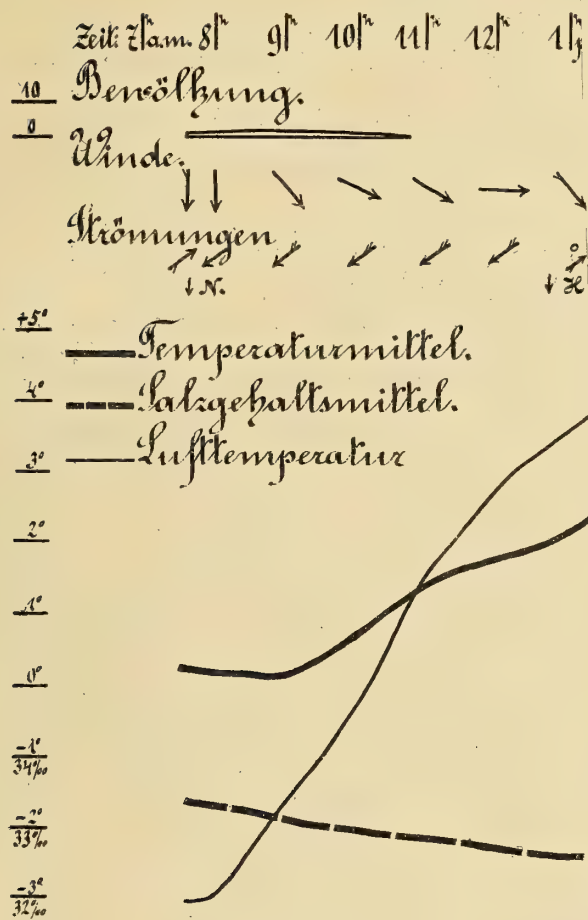 Zeit: 7h a.m. 8h 9h 10h 11h 12h 1h
10 Bewölkung.
0
Winde.
Strömungen
↓ N. ↓ H
+5°
Temperaturmittel.
4° Salzgehaltsmittel.
3° Lufttemperatur
2°
1°
0°
-1°
34‰
-2°
33‰
-3°
32‰